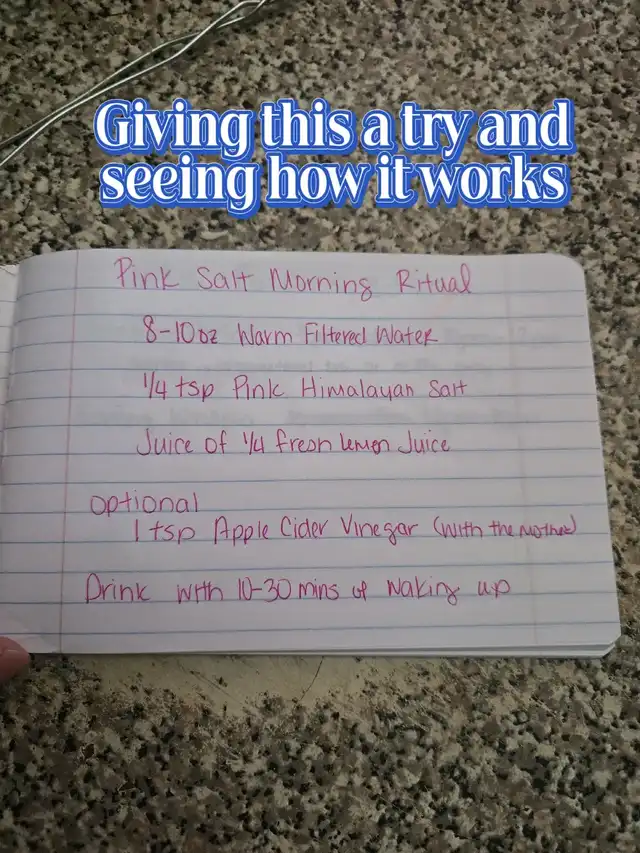 Giving this a try and
seeing how it works
Pink Salt Morning Ritual
8-10oz Warm Filtered Water
1/4 tsp Pink Himalayan Salt
Juice of 1/4 fresh lemon Juice
optional
1 tsp Apple Cider Vinegar (with the Mother)
Drink with 10-30 mins of waking up